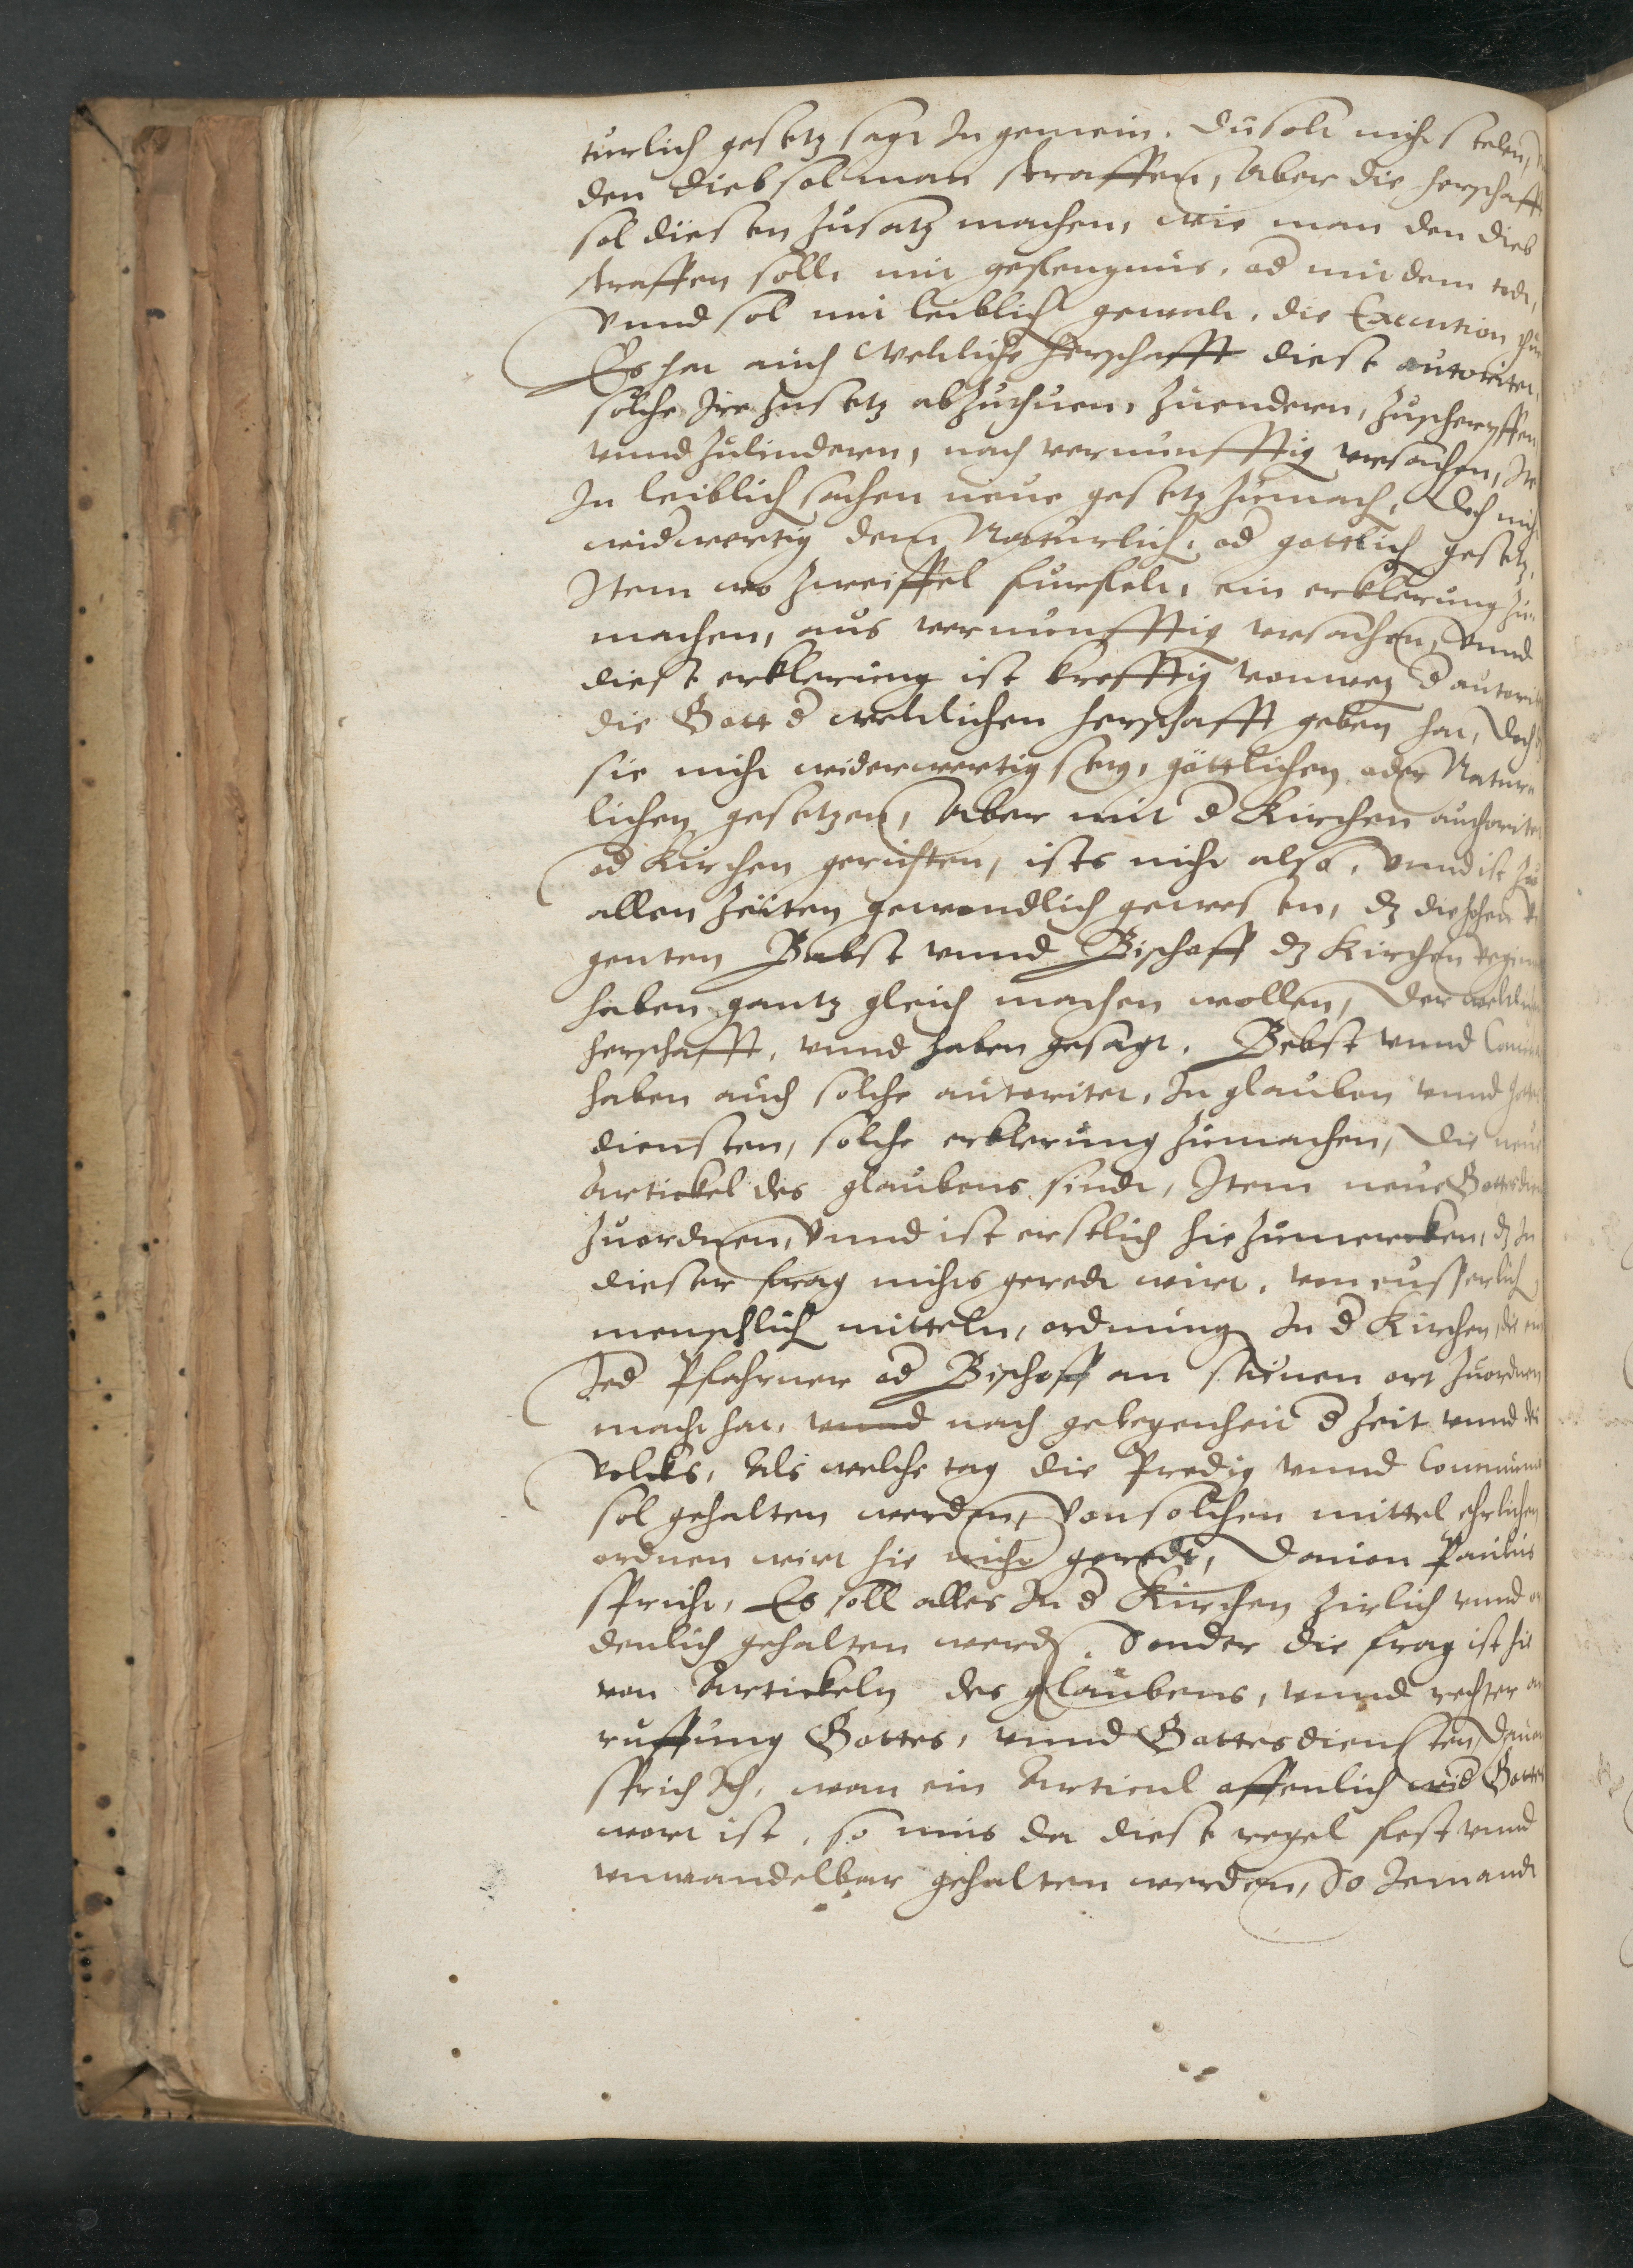 turlich gesetz sagt In gemein. Du solt nicht stelen,
den dieb sol man straffen, Aber die herschafft
sol diesen zusatz machen, wie man den dieb
straffen solle mit gefengnus, od mit dem todt,
Vnnd sol mit leiblich gewalt, die Execution thun
Es hat auch Weltliche herschafft diese autoritet,
solche Ire zusetz abzuthuen, zuendern, zuscherpffen
vnnd zulindern, nach vernunfftig vrsachen, It
In leiblich sachen neue gesetz zumach, Doch nicht
widwertig dem Naturlich, od gottlich gesetz,
Item wo zweiffel furfelt, ein erklerung zu
machen, aus vernunfftig vrsachen, Vnnd
diese erklerung ist krefftig vonweg d autoritet
die Gott d weltlichen herschafft geben hat, Doch
sie nicht widerwertig sey, göttlichen oder Natur
lichen gesetzen, Aber mit d Kirchen authoritet
od Kirchen gerichten, ists nicht also, Vnnd ist zu
allen zeiten gewondlich gewesen, dz die hohen Re
genten Babst vnnd Bischoff dz Kirchen regiment
haben gantz gleich machen wollen, Der weltlichen
herschafft, vnnd haben gesagt, Bebst vnnd Conci
haben auch solche autoritet, In glauben vnnd Gottes
diensten, solche erklerung zumachen, Die neue
Artickel des glaubens sindt, Item neue Gottesdien
zuordnen, Vnnd ist erstlich hie zumercken, dz In
dieser frag nichts geredt wirt, von eusserlich
menschlich mitteln, ordnung In d Kirchen, die ein
Jed Pfahrner od Bischoff an seinen ort zuordnen
macht hat, vnnd nach gelegenheit d zeit vnnd des
Volcks, Als welche tag die Predig vnnd Communi
sol gehalten werden, Von solchen mittel ehrlichen
ordnen wirt hie nicht geredt, Dauon Paulus
spricht, Es soll alles In d Kirchen zirlich vnnd or
denlich gehalten werdn, Sonder die frag ist hie
von Artickeln des glaubens, vnnd rechter an
ruffung Gottes, vnnd Gottesdiensten, Dauon
sprich Ich, wan ein Articul offenlich wid Gottes
wort ist, so mus da diese regel fest vnnd
vnwandelbar gehalten werden, So Jemandt